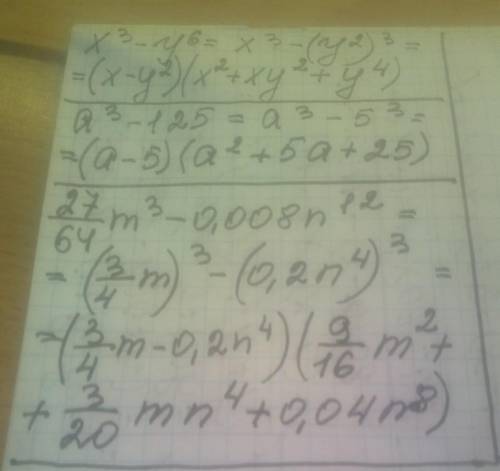 x³-y⁶= x³-(y²)³=
=(x-y²)(x²+xy²+y⁴)
a³-125 = a³-5³=
=(a-5)(a²+5a+25)
27/64 m³-0,008n¹² =
= (3/4 m)³-(0,2n⁴)³ =
=(3/4 m-0,2n⁴)(9/16 m²+
+ 3/20 mn⁴+0,04n⁸)